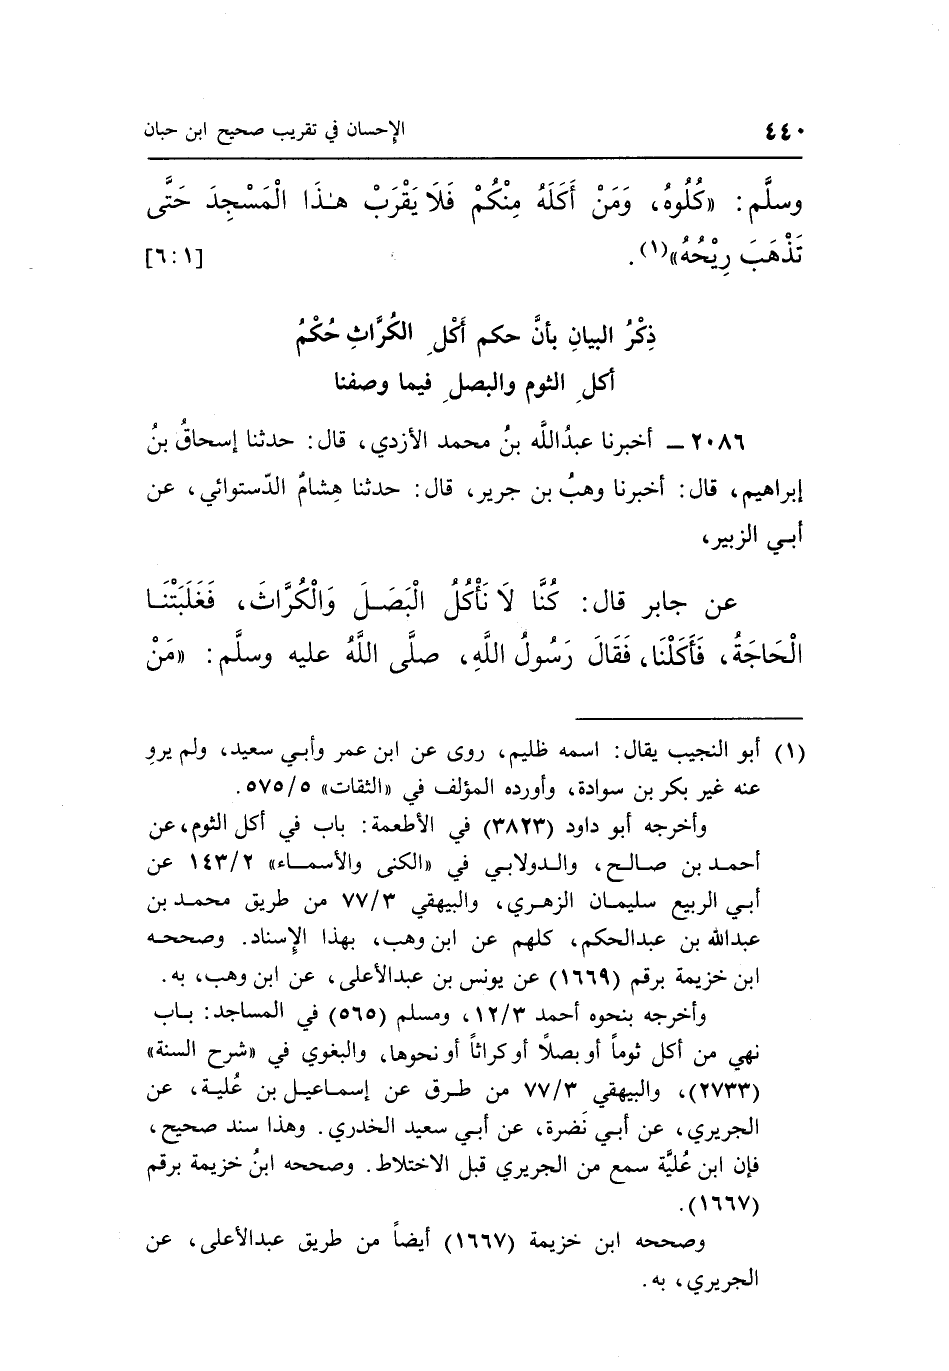 ٤٤٠ الإحسان في تقريب صحيح ابن حبان
وسلَّم: «كُلُوهُ، وَمَنْ أَكَلَهُ مِنْكُمْ فَلَا يَقْرَبْ هٰذَا الْمَسْجِدَ حَتَّى
تَذْهَبَ رِيْحُهُ»(١). [١ :٦]
ذِكْرُ البيانِ بأنَّ حكم أَكْلِ الكُرَّاثِ حُكْمُ
أكلِ الثوم والبصلِ فيما وصفنا
٢٠٨٦ ــ أخبرنا عبدُالله بنُ محمد الأزدي، قال: حدثنا إسحاقُ بنُ
إبراهيم، قال: أخبرنا وهبُ بن جرير، قال: حدثنا هِشامُ الدّستوائي، عن
أبي الزبير،
عن جابر قال: كُنَّا لَا نَأْكُلُ الْبَصَلَ وَالْكُرَّاثَ، فَغَلَبَتْنَا
الْحَاجَةُ، فَأَكَلْنَا، فَقَالَ رَسُولُ اللَّهِ، صلَّى اللَّهُ عليه وسلَّم: «مَنْ
(١) أبو النجيب يقال: اسمه ظليم، روى عن ابن عمر وأبي سعيد، ولم يروِ
عنه غير بكر بن سوادة، وأورده المؤلف في «الثقات» ٥٧٥/٥.
وأخرجه أبو داود (٣٨٢٣) في الأطعمة: باب في أكل الثوم، عن
أحمد بن صالح، والدولابي في «الكنى والأسماء» ١٤٣/٢ عن
أبي الربيع سليمان الزهري، والبيهقي ٧٧/٣ من طريق محمد بن
عبدالله بن عبدالحكم، كلهم عن ابن وهب، بهذا الإسناد. وصححه
ابن خزيمة برقم (١٦٦٩) عن يونس بن عبدالأعلى، عن ابن وهب، به.
وأخرجه بنحوه أحمد ١٢/٣، ومسلم (٥٦٥) في المساجد: باب
نهي من أكل ثوماً أو بصلًا أو كراثاً أو نحوها، والبغوي في «شرح السنة»
(٢٧٣٣)، والبيهقي ٧٧/٣ من طرق عن إسماعيل بن عُلية، عن
الجريري، عن أبي نَضرة، عن أبي سعيد الخدري. وهذا سند صحيح،
فإن ابن عُليَّة سمع من الجريري قبل الاختلاط. وصححه ابنُ خزيمة برقم
(١٦٦٧).
وصححه ابن خزيمة (١٦٦٧) أيضاً من طريق عبدالأعلى، عن
الجريري، به.